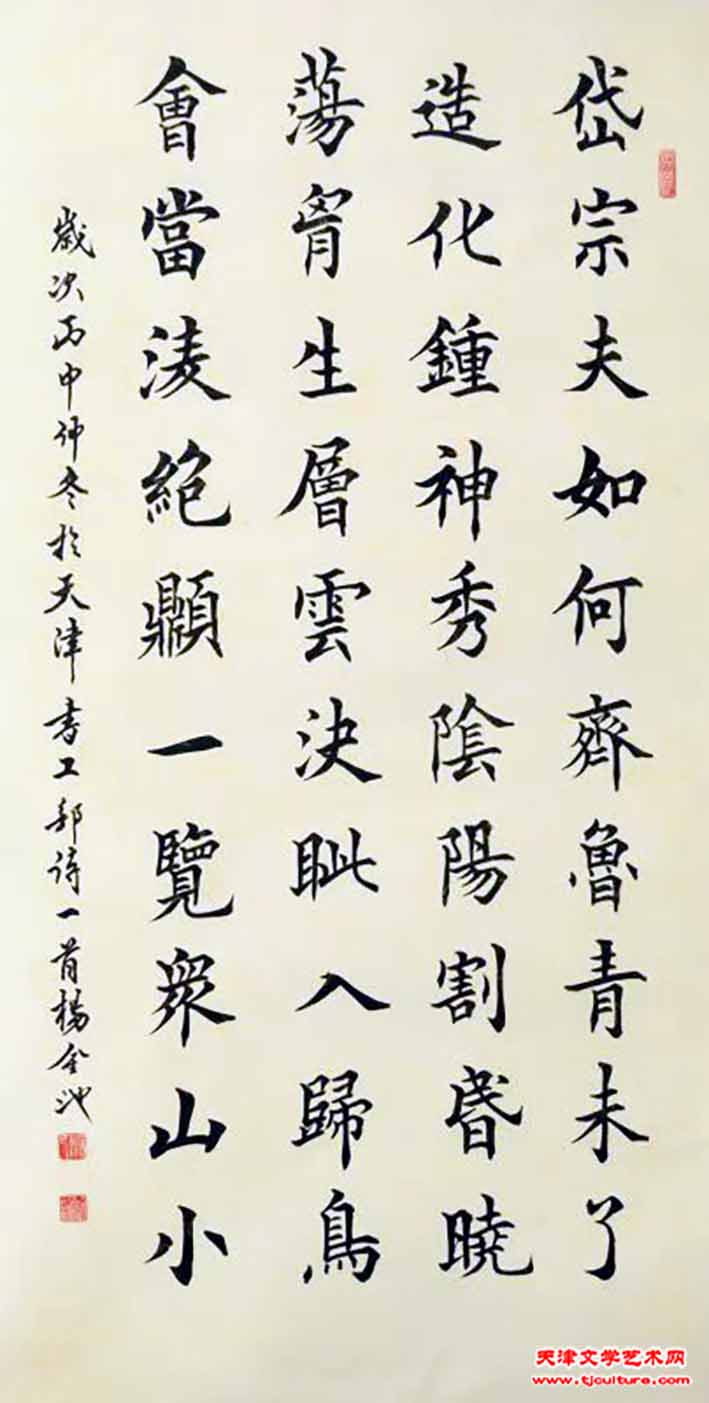 岱宗夫如何齊魯青未了
造化鍾神秀陰陽割昏曉
蕩胷生層雲決眦入歸鳥
會當淩絕顚一覽衆山小
歲次丙申仲冬於天津書工部詩一首楊金池
天津文学艺术网
www.tjculture.com